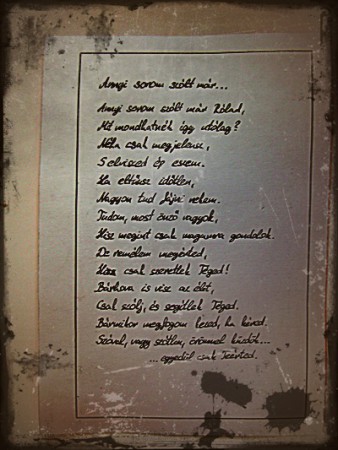 Annyi sorom szólt már...
Annyi sorom szólt már Rólad,
Mit mondhatnék így utólag?
Néha csak megjelensz,
S elviszed ép eszem.
Ha eltűnsz időtlen,
Nagyon tud fájni nekem.
Tudom, most önző vagyok,
Hisz megint csak magamra gondolok.
De remélem megérted,
Hisz csak szeretlek Téged!
Bárhova is visz az élet,
Csak szólj, és segítlek Téged.
Bármikor megfogom kezed, ha kéred.
Szóval, vagy szótlan, örömmel küzdök...
...egyedül csak Teérted.